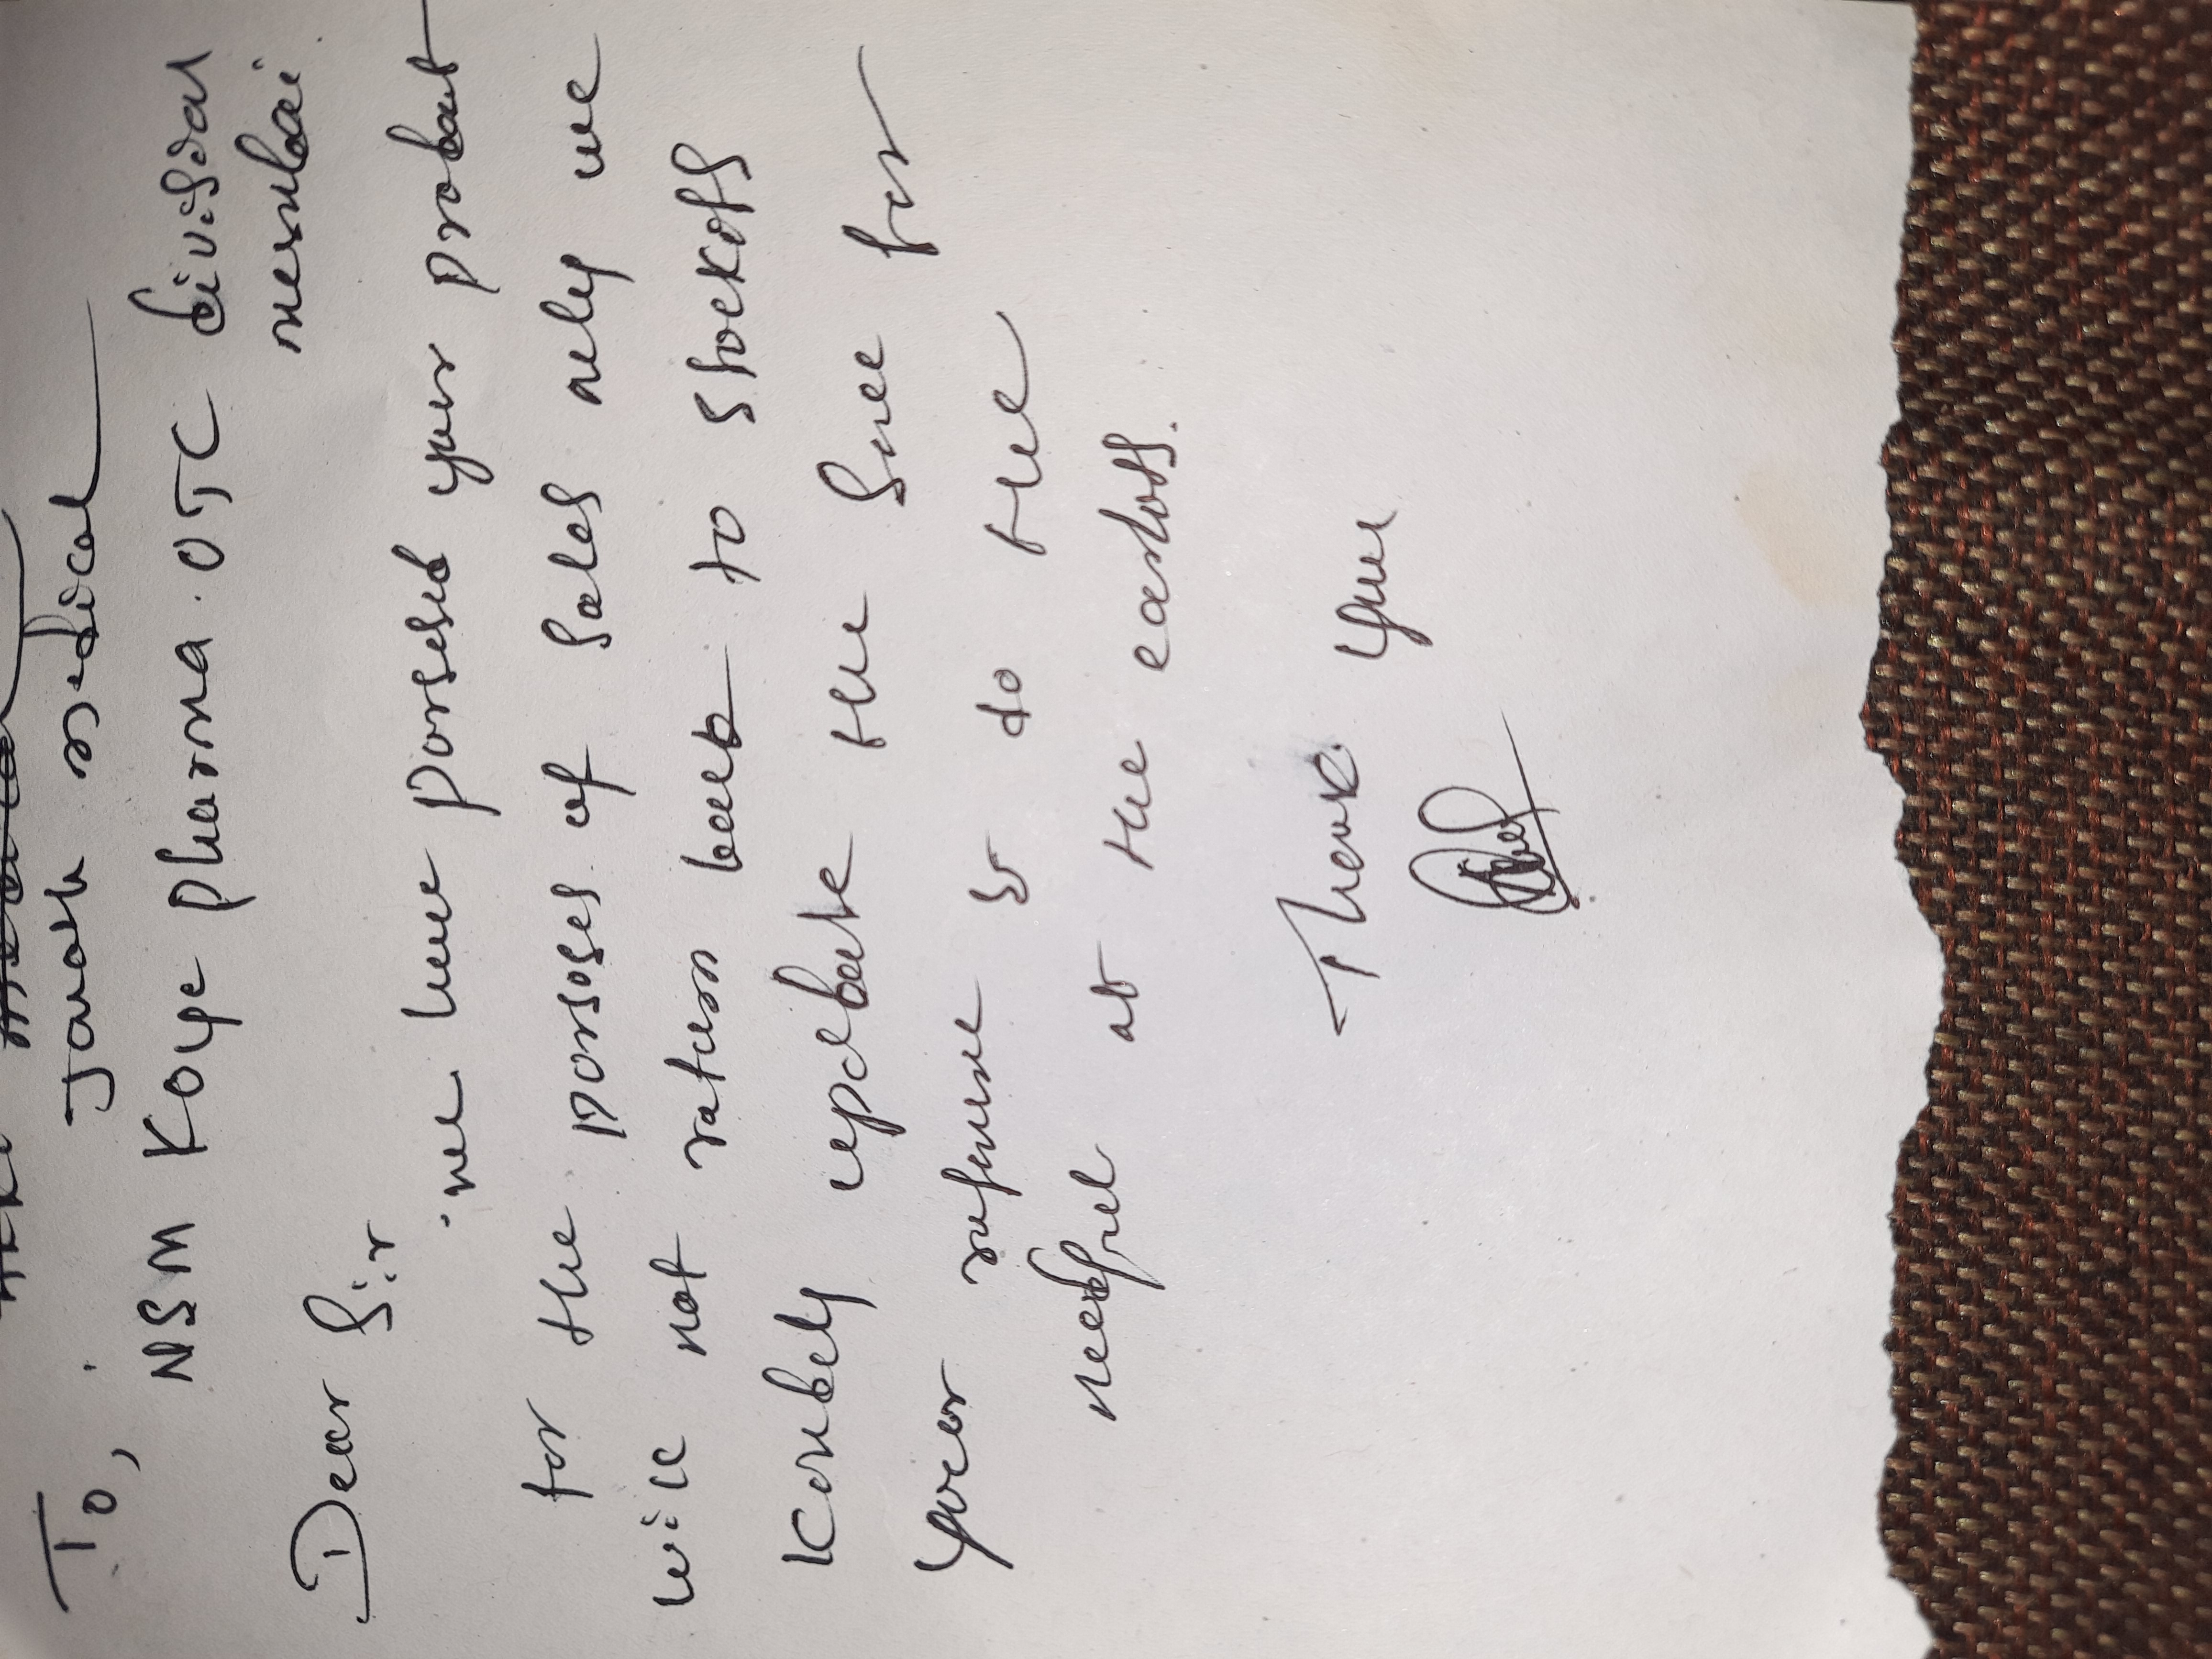 To,
Janak medical
NSM Koye pharma. OTC divison
mumbai
Dear Sir
we have porsesed your probact
for the porsoses of sales only we
will not return back to stockots
Konbely updeate the same for
your refrence & do the
needful at the earloss.
Thank you